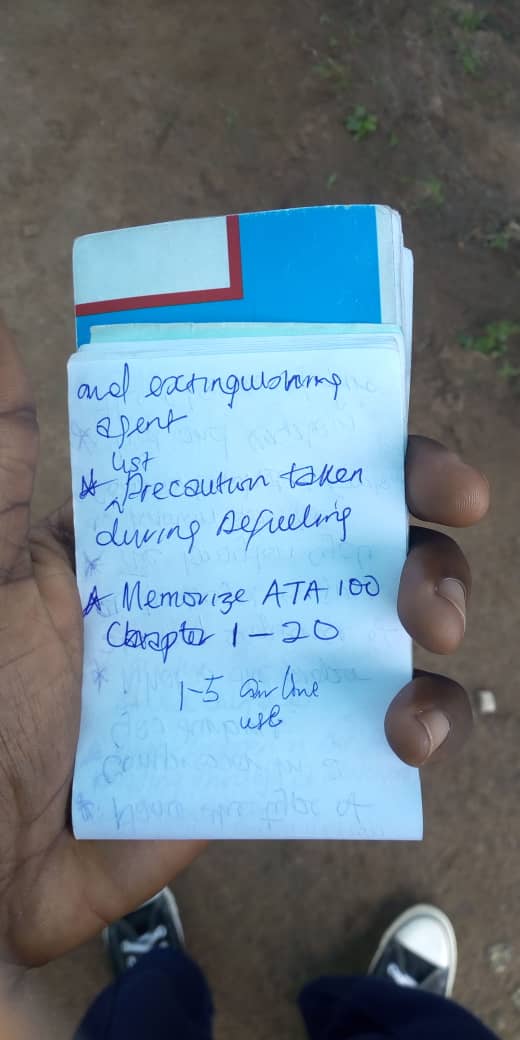 and extinguishing
agent
* list
Precaution taken
during Refueling
* Memorize ATA 100
Chapter 1-20
1-5 airline
use